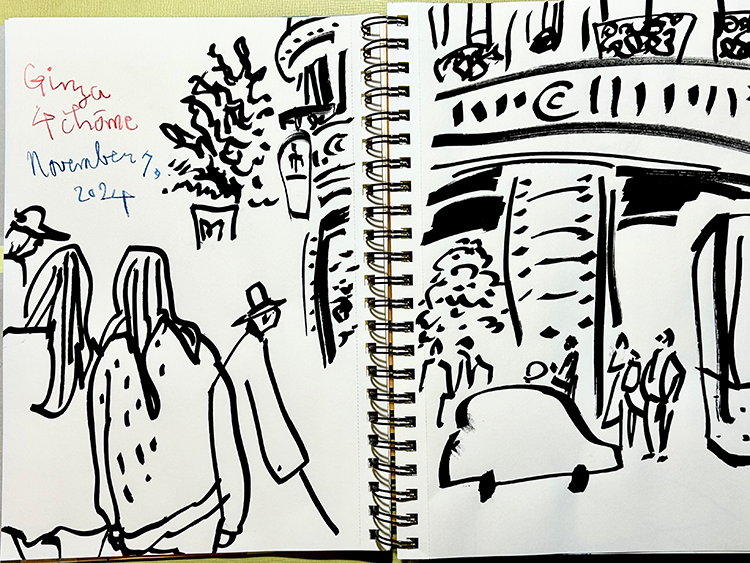 Ginza
4 chōme
November 7,
2024